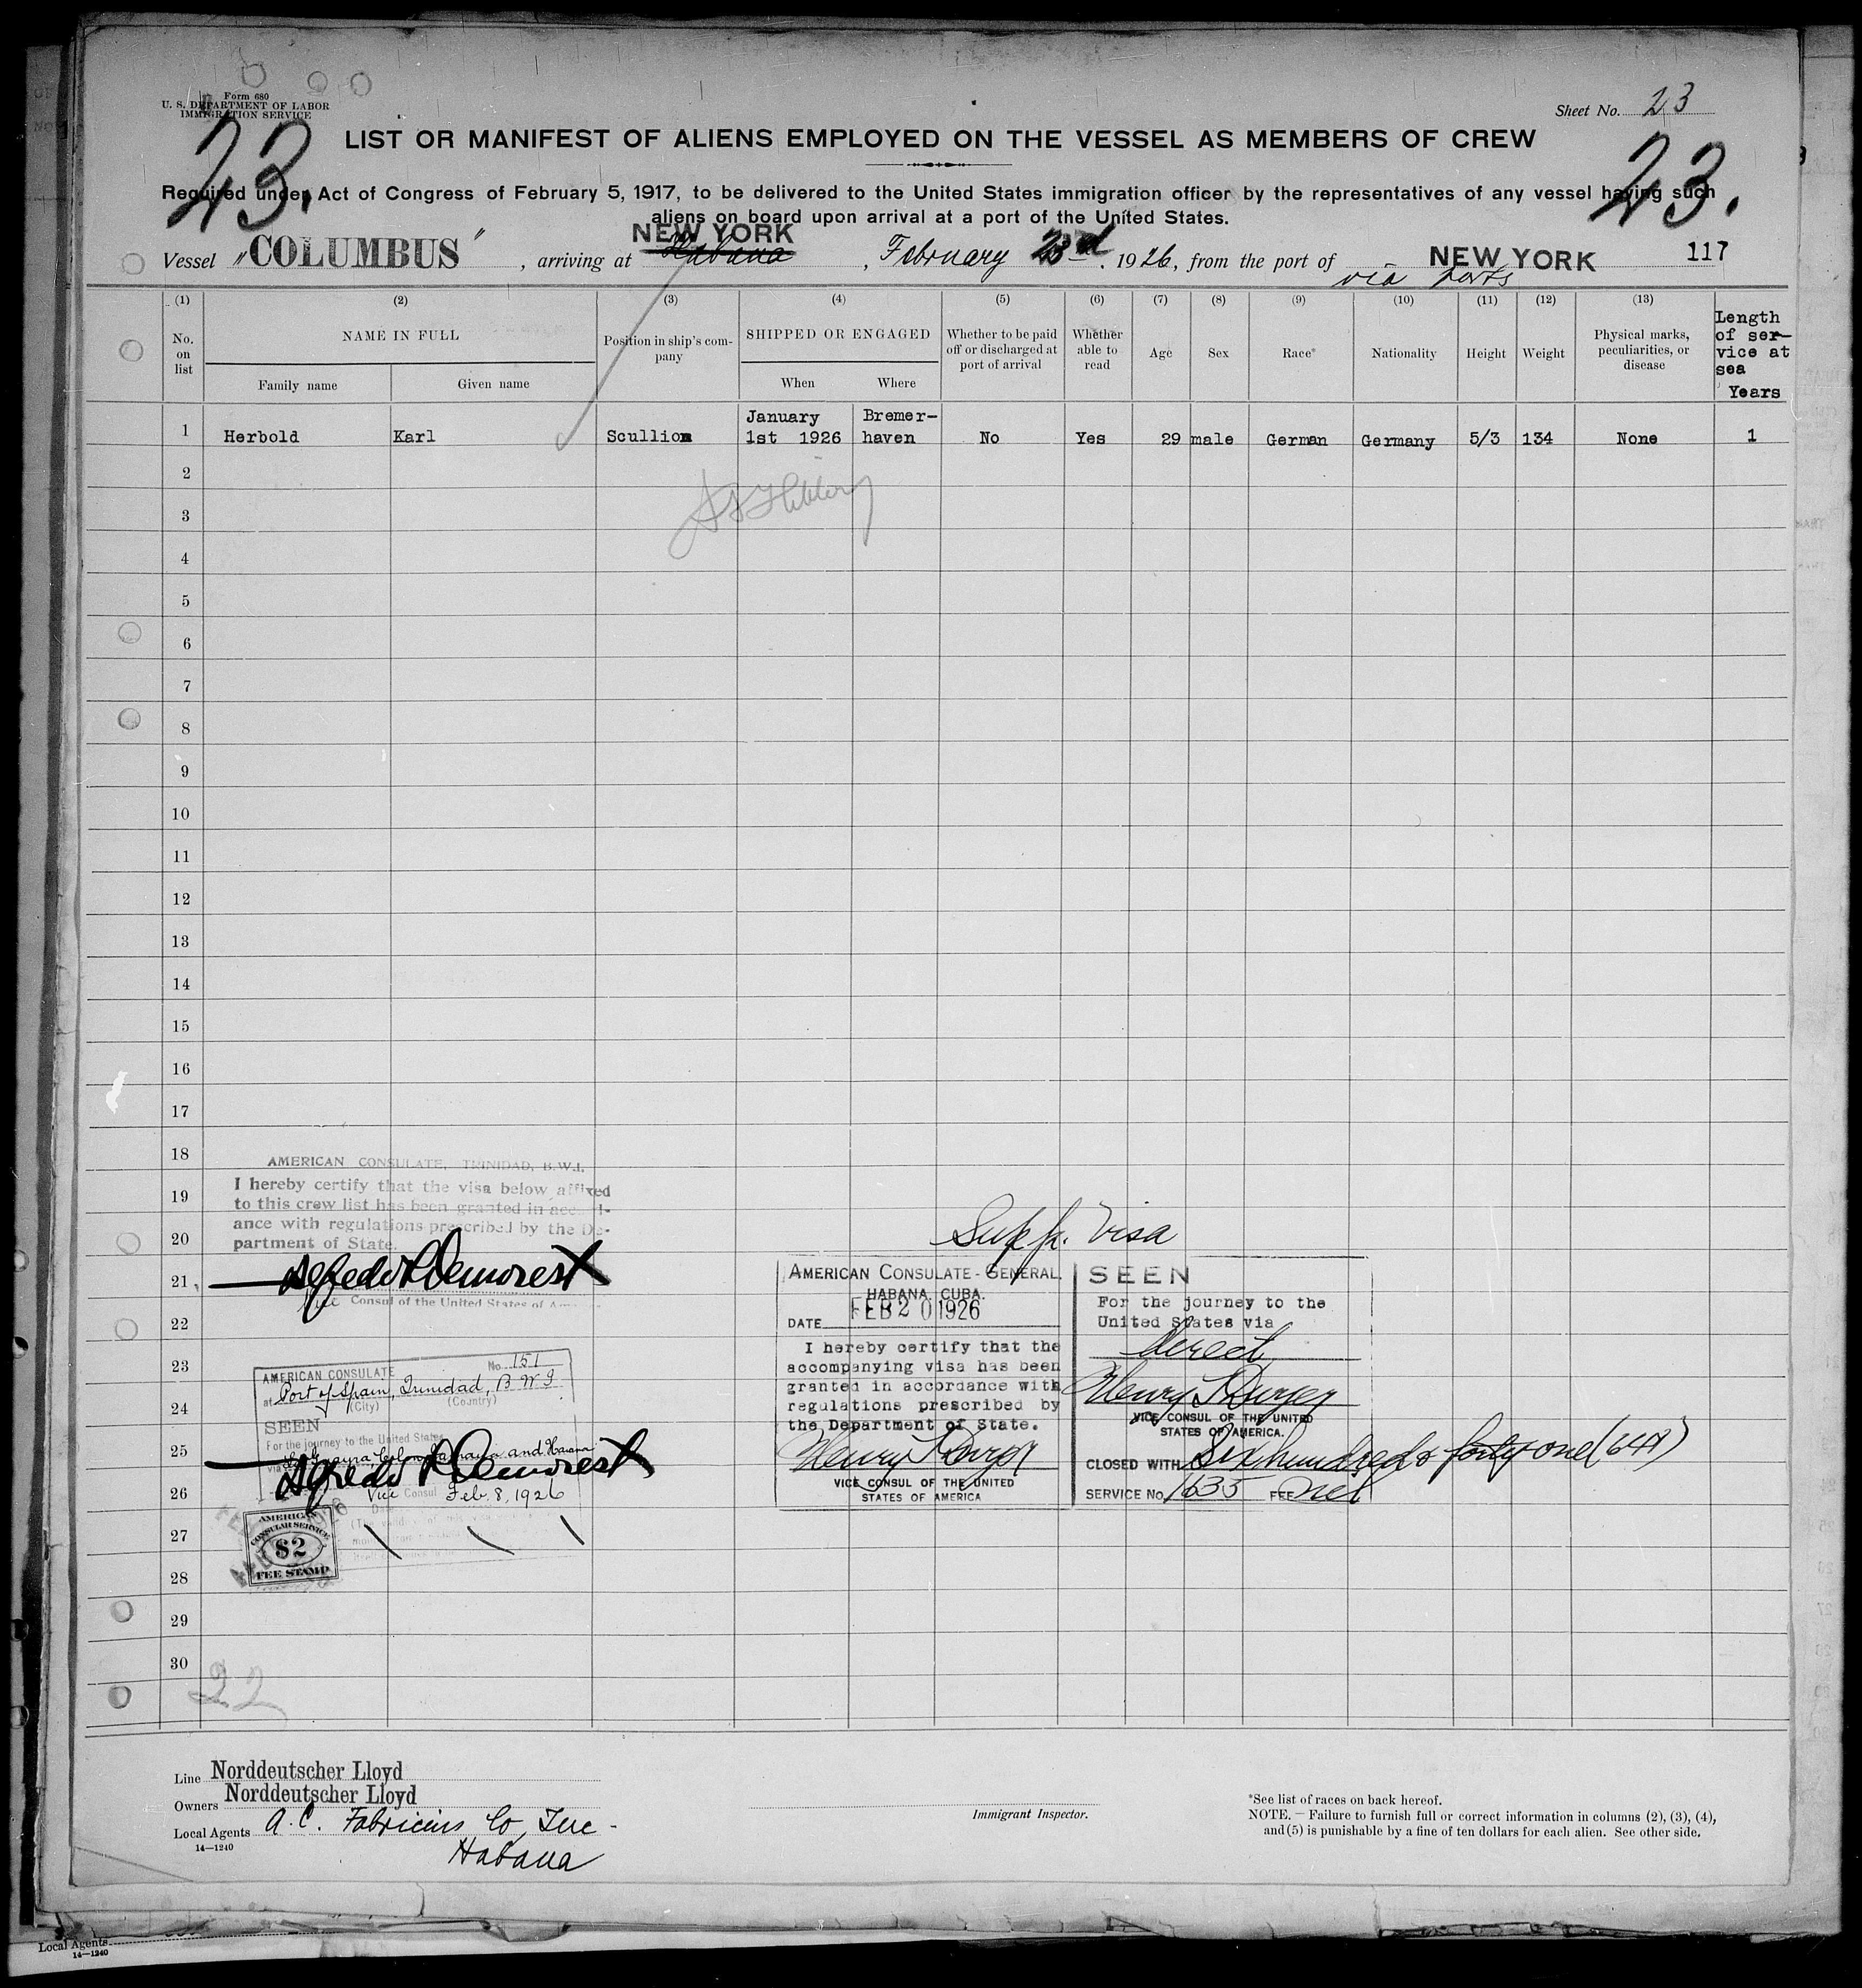 Form 680
U. S. DEPARTMENT OF LABOR
IMMIGRATION SERVICE
Sheet No. 23
23.
23.
LIST OR MANIFEST OF ALIENS EMPLOYED ON THE VESSEL AS MEMBERS OF CREW
Required under Act of Congress of February 5, 1917, to be delivered to the United States immigration officer by the representatives of any vessel having such
aliens on board upon arrival at a port of the United States.
NEW YORK
Vessel "COLUMBUS", arriving at Habana, February 23rd, 1926, from the port of NEW YORK 117
via ports
(1) (2) (3) (4) (5) (6) (7) (8) (9) (10) (11) (12) (13)
No. on list
NAME IN FULL
Family name Given name
Position in ship's company
SHIPPED OR ENGAGED
When Where
Whether to be paid off or discharged at port of arrival
Whether able to read
Age
Sex
Race*
Nationality
Height
Weight
Physical marks, peculiarities, or disease
Length of ser-vice at sea Years
January Bremer-
1 Herbold Karl Scullion 1st 1926 haven No Yes 29 male German Germany 5/3 134 None 1
2
3
4
5
6
7
8
9
10
11
12
13
14
15
16
17
18
19
20
21
22
23
24
25
26
27
28
29
30
AMERICAN CONSULATE, TRINIDAD, B.W.I.
I hereby certify that the visa below affixed
to this crew list has been granted in accord-
ance with regulations prescribed by the De-
partment of State.
Alfredo R Demorest
Vice Consul of the United States of America
AMERICAN CONSULATE No. 151
at Port of Spain, Trinidad, B W I
(City) (Country)
SEEN
For the journey to the United States
via La Guayra, Colon, Jamaica and Havana
Alfredo R Demorest
Vice Consul Feb. 8, 1926
AMERICAN
CONSULAR SERVICE
$2
FEE STAMP
22
Supp. Visa
AMERICAN CONSULATE-GENERAL,
HABANA, CUBA.
DATE FEB 20 1926
I hereby certify that the
accompanying visa has been
granted in accordance with
regulations prescribed by
the Department of State.
VICE CONSUL OF THE UNITED
STATES OF AMERICA
SEEN
For the journey to the
United States via
direct
VICE CONSUL OF THE UNITED
STATES OF AMERICA.
CLOSED WITH Six hundred & forty one (641)
SERVICE No. 1635 FEE
Line Norddeutscher Lloyd
Owners Norddeutscher Lloyd
Local Agents A. C. Fabricius Co Inc -
14—1240
Habana
Immigrant Inspector.
*See list of races on back hereof.
NOTE. — Failure to furnish full or correct information in columns (2), (3), (4),
and (5) is punishable by a fine of ten dollars for each alien. See other side.
Local Agents
14—1240